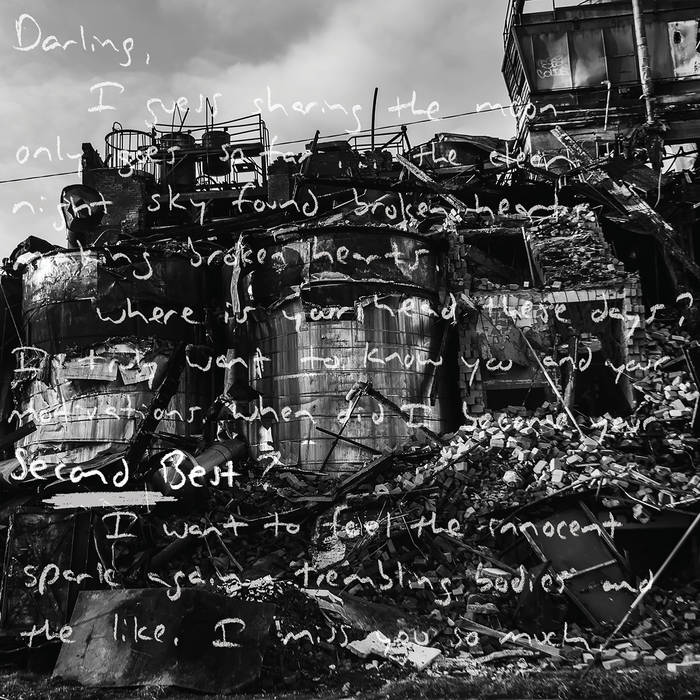 Darling,
I guess sharing the moon
only goes so far ... the clean
night sky found broken hearts
mating broken hearts.
Where is your head these days?
I truly want to know you and your
motivations. When did I become your
Second Best?
I want to feel the innocent
spark again trembling bodies and
the like. I miss you so much.